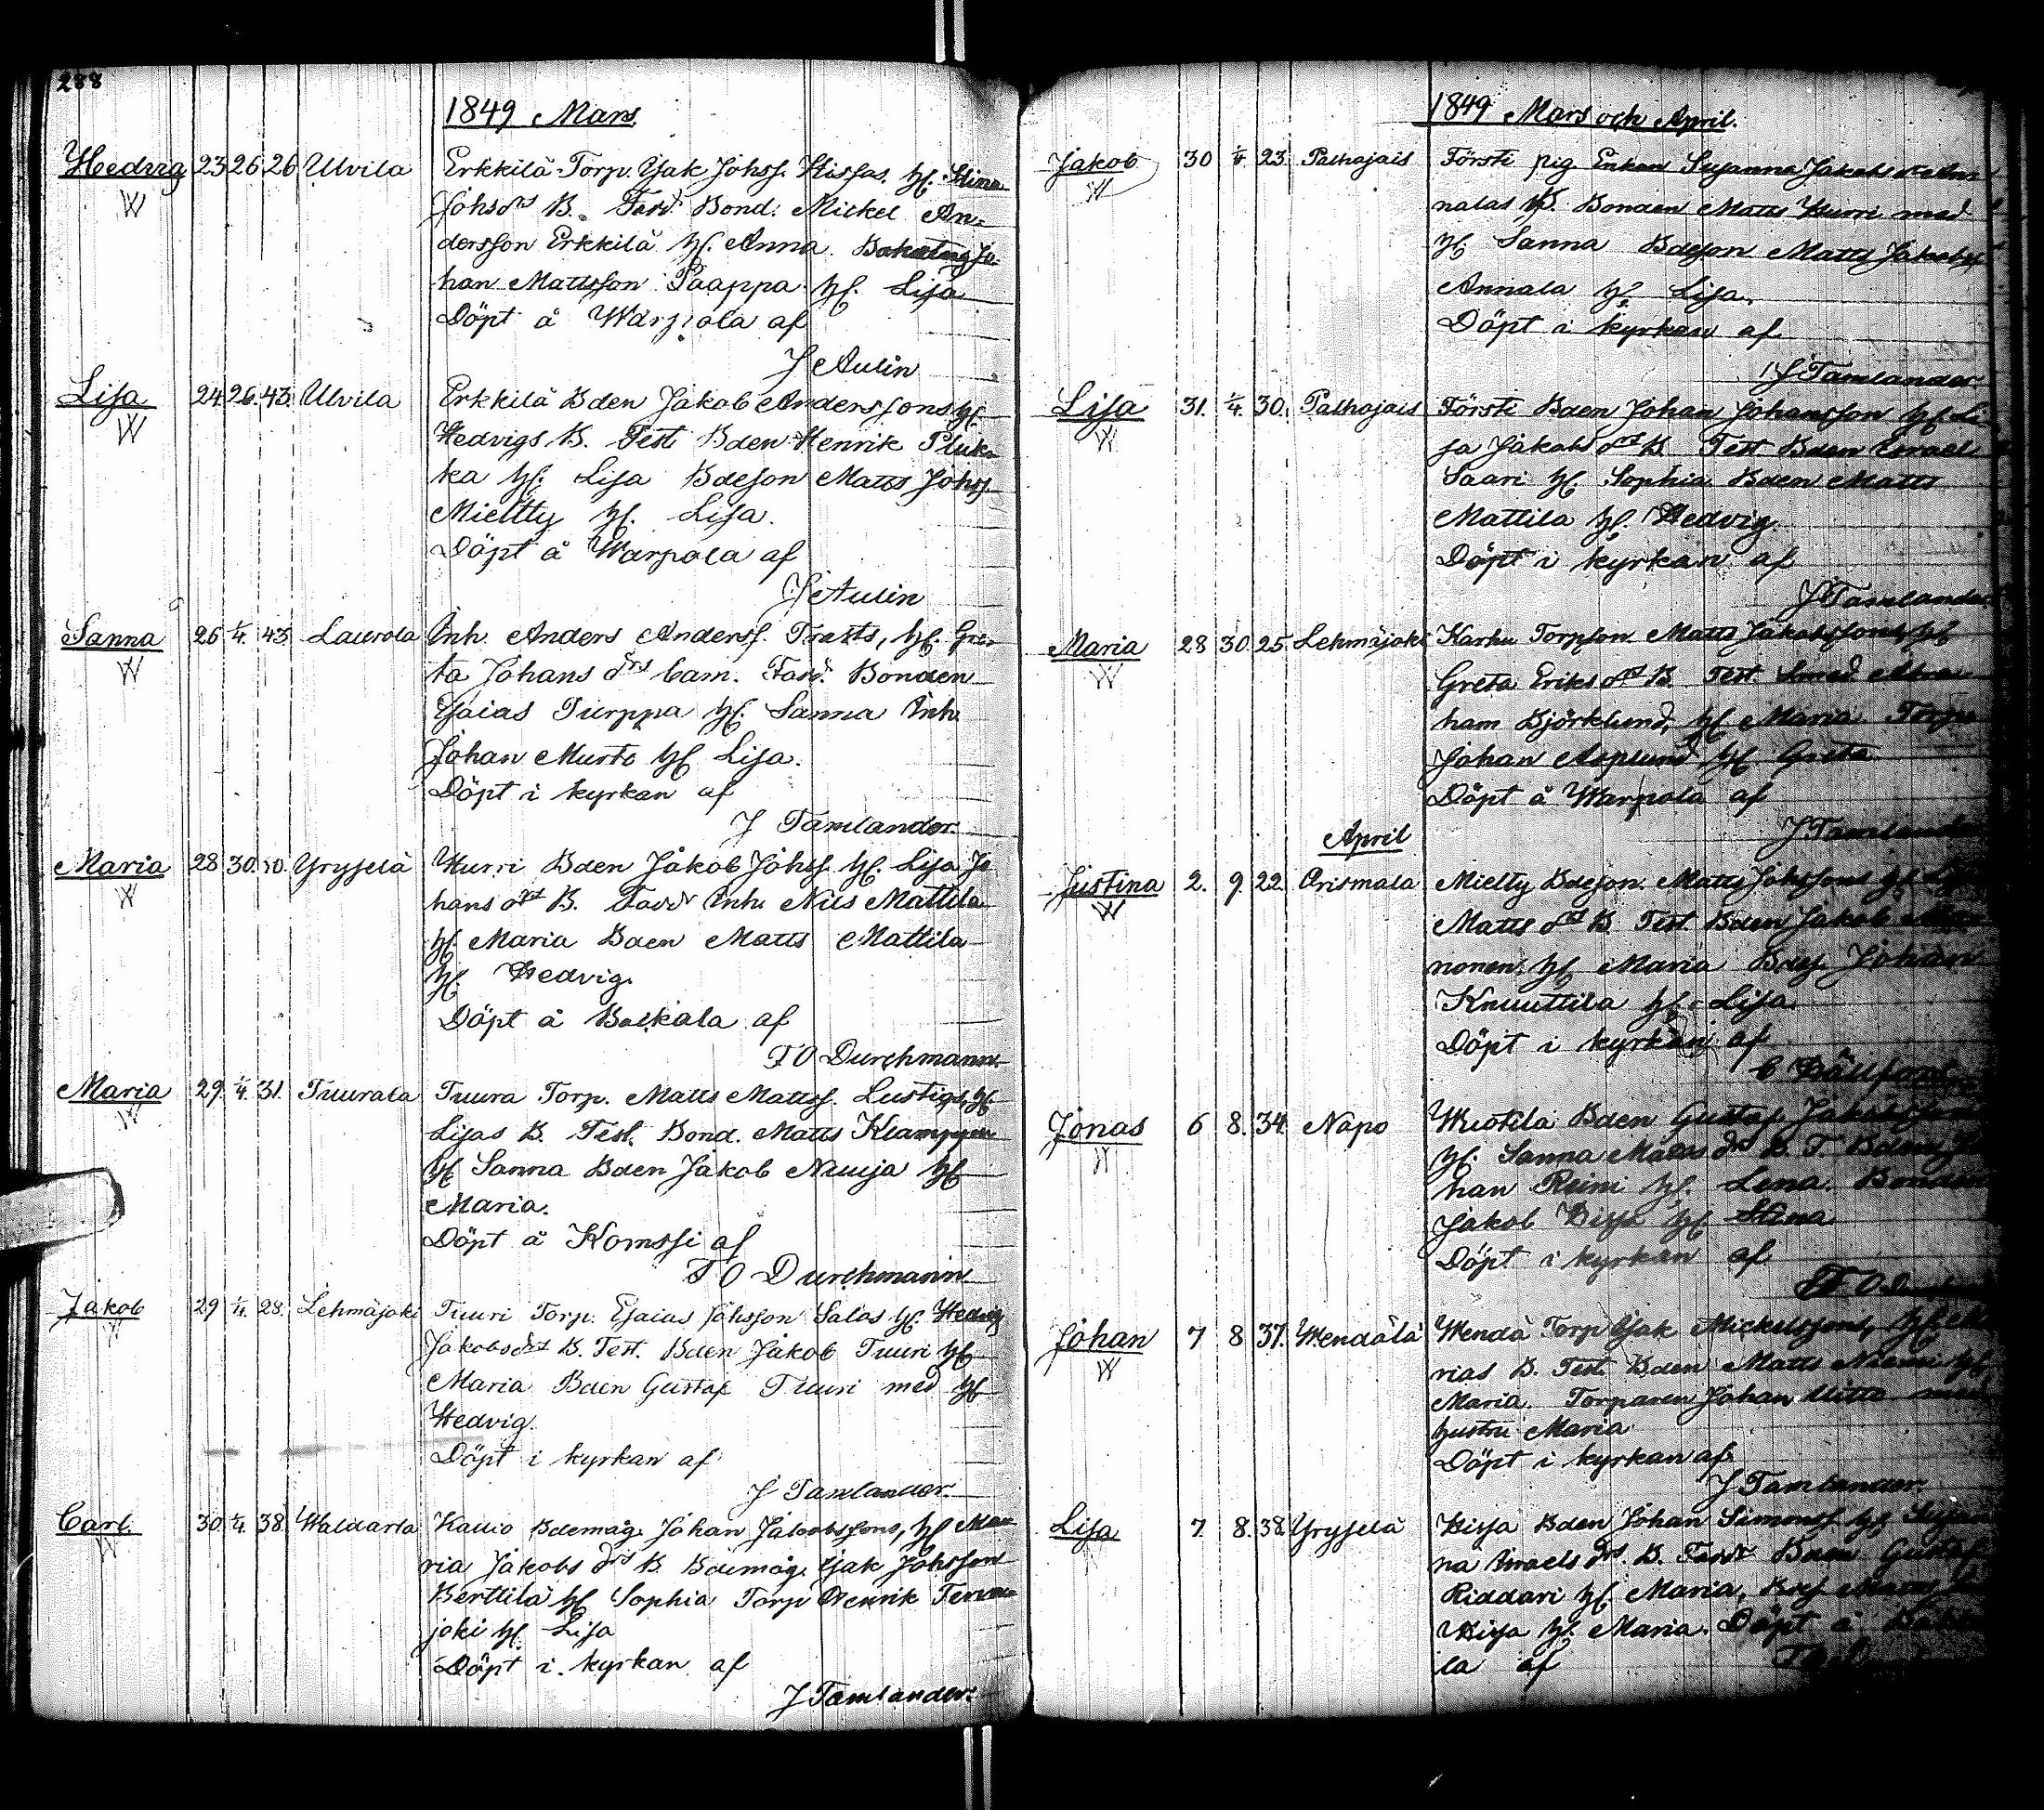 288
1849 Mars
Hedvig 23 26 26 Ulvila Erkkilä Torp. Isak Johss. Hissas. H. Stina
W Johsdrs B. Fadd. Bond. Mickel An-
dersson Erkkilä H. Anna Jo-
han Mattsson Paappa H. Lisa
Döpt å Warpola af
J Aulin
Lisa 24. 26. 43. Ulvila Erkkilä Bden Jakob Anderssons H.
W Hedvigs B. Test Bden Henrik Pluk-
ka H. Lisa Bdeson Matts Johss.
Mieltty H. Lisa.
Döpt å Warpola af
J Aulin
Sanna 26 1/4. 43. Laurola Inh. Anders Anderss. H. Gre-
W ta Johans drs barn. Fadd. Bonden
Esaias Turppa H. Sanna Inh.
Johan Murto H Lisa.
Döpt i kyrkan af
J Tamlander.
Maria 28 30. Yryselä Hurri Bden Jakob Johss. H. Lisa Jo
W hans drs B. Faddr Inh. Nils Mattila
H. Maria Bden Matts Mattila
H. Hedvig.
Döpt å Balkala af
F O Durchmann.
Maria 29. 1/4. 31. Tuurala Tuura Torp. Matts Matts. Lustigs, H.
W Lisas B. Test. Bond. Matts
H Sanna Bden Jakob H
Maria.
Döpt å Komssi af
F O Durchmann
Jakob 29 1/4. 28. Lehmäjoki Tuuri Torp. Esaias Johsson Salas H. Hedvig
W Jakobsdrs B. Test. Bden Jakob Tuuri H
Maria Bden Gustaf Tuuri med H
Hedvig.
Döpt i kyrkan af
J Tamlander.
Carl 30. 1/4. 38. Waldarla Kallio Bdemåg. Johan Jakobssons, H Ma-
W ria Jakobs drs B. Bdemåg. Isak Johsson
Berttilä H Sophia Torp Henrik
joki H. Lisa
Döpt i kyrkan af
J Tamlander.
1849 Mars och April.
Jakob 30 1/4 23. Palhojais Försti pig Enkan Susanna Jakobs
W nalas B. Bonden Matts Hurri med
H. Sanna Bdeson Matts
Annala H. Lisa.
Döpt i kyrkan af
J Tamlander
Lisa 31. 1/4. 30. Palhojais Försti Bden Johan Johansson H. Li-
W sa Jakobs drs B. Test Bden Esrael
Saari H. Sophia Bden Matts
Mattila H. Hedvig
Döpt i kyrkan af
J Tamlander
Maria 28 30. 25. Lehmäjoki Karhu Torpson Matts Jakobssons H
W Greta Eriks drs B. Test. Smed Abra-
ham Björklund, H Maria Torp.
Johan Asplund H Greta
Döpt å Warpola af
J Tamlander
April
Justina 2. 9. 22. Orismala Mielty Bdeson. Matts Johssons H.
W Matts drs B. Test. Bden Jakob
nonen, H Maria Bdes. Johan
Knuuttila H. Lisa.
Döpt i kyrkan af
Jonas 6 8. 34. Napo Wuotila Bden Gustaf
W H. Sanna drs B. T. Bden
han Reini H. Lena. Bonden
Jakob Hissa H. Stina
Döpt i kyrkan af
F O
Johan 7 8 37. Wendälä Wendä Torp Isak Mickelssons, H Ma-
W rias B. Test. Bden Matts Niemi H.
Maria. Torparen Johan Uitto med
hustru Maria
Döpt i kyrkan af
J Tamlander.
Lisa 7. 8. 38. Yryselä Hissa Bden Johan Simonss H
na Israels drs B. Faddr Bden Gustaf
Riddari H. Maria,
Hissa H. Maria. Döpt å
la af